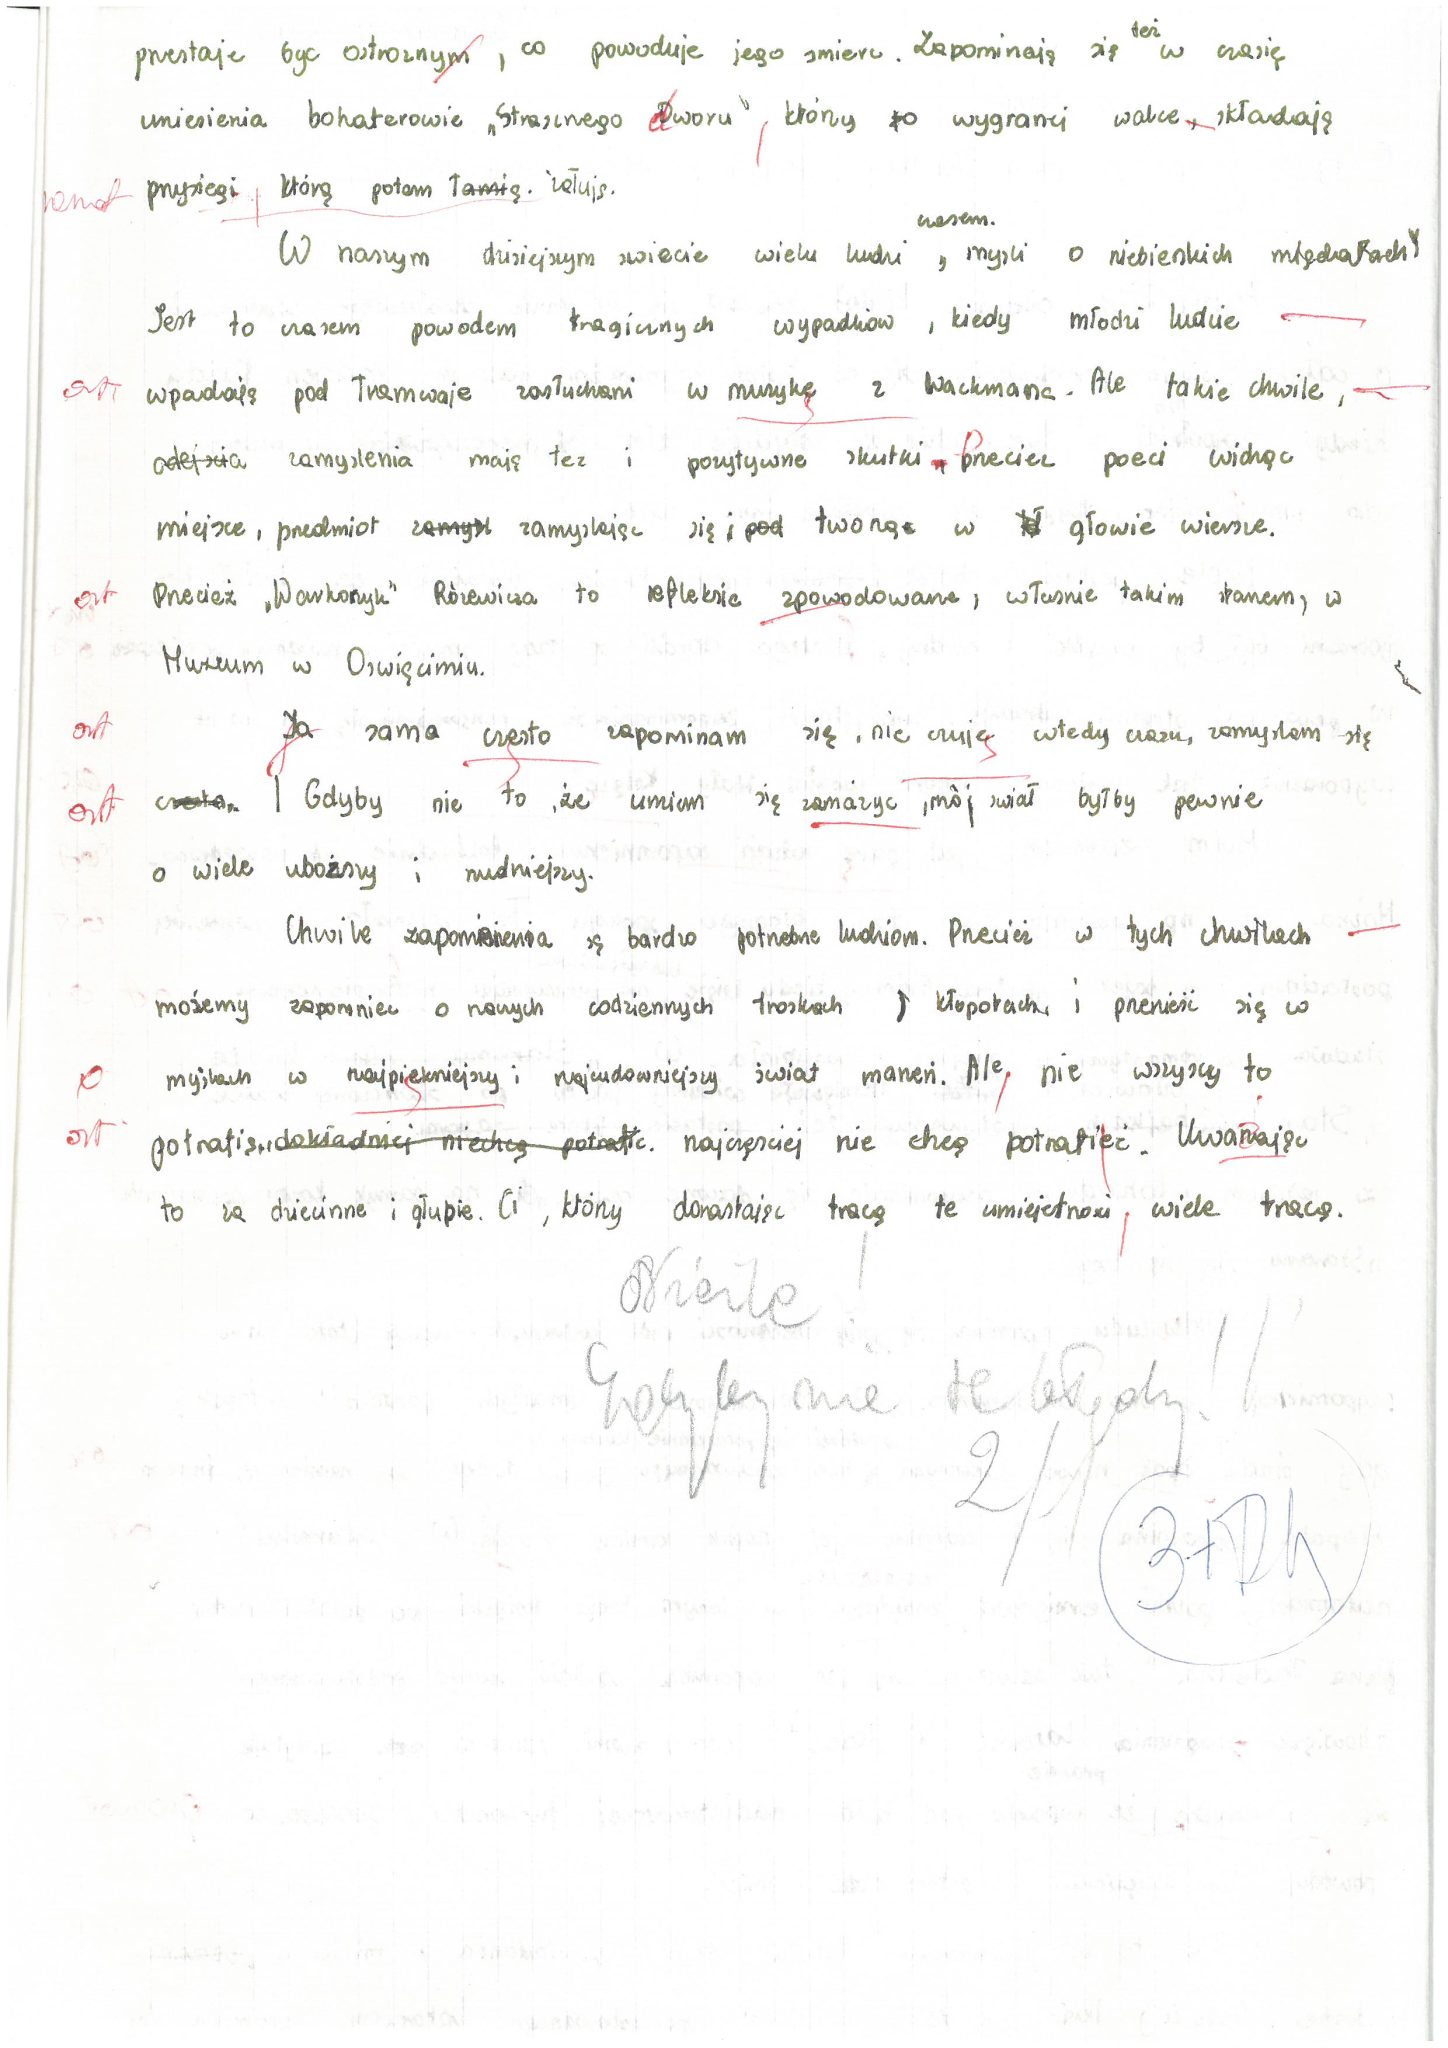 przestaje byc ostroznym, co powoduje jego smierc. Zapominają się też w czasię
uniesienia bohaterowie „Strasznego Dworu", którzy po wygranej walce, składają
przysięgi którą potem łamią. żałują.
W naszym dzisiejszym swiecie wielu ludzi czasem „mysli o niebieskich migdałach"
Jest to czasem powodem tragicznych wypadków, kiedy młodzi ludzie
ort wpadają pod tramwaje zasłuchani w muzykę z Wackmana. Ale takie chwile,
odejscia zamyslenia mają tez i pozytywne skutki, Przeciez poeci widząc
miejsce, przedmiot zamysl zamyslając się i pod tworzą w głowie wiersze.
ort Przecież „Warkoczyk" Rózewicza to refleksie zpowodowane, własnie takim stanem, w
Muzeum w Oswięcimiu.
ort Ja sama często zapominam się, nie czuję wtedy czasu, zamyslam się
ort czesto. Gdyby nie to, że umiem się zamażyc, mój swiat byłby pewnie
o wiele uboższy i nudniejszy.
Chwile zapomnienia są bardzo potrzebne ludziom. Przecież w tych chwilkach
możemy zapomniec o naszych codziennych troskach, kłopotach, i przenieść się w
myślach w najpiękniejszy i najcudowniejszy świat marzeń. Ale, nie wszyscy to
ort potrafią, dokładniej niechcą potrafic. najczęsciej nie chcą potrafieć. Uwarzając
to za dziecinne i głupie. Ci, którzy dorastając tracą te umiejętnosci, wiele tracą.
Nieźle!
Gdyby nie te błędy!!
2/
3+